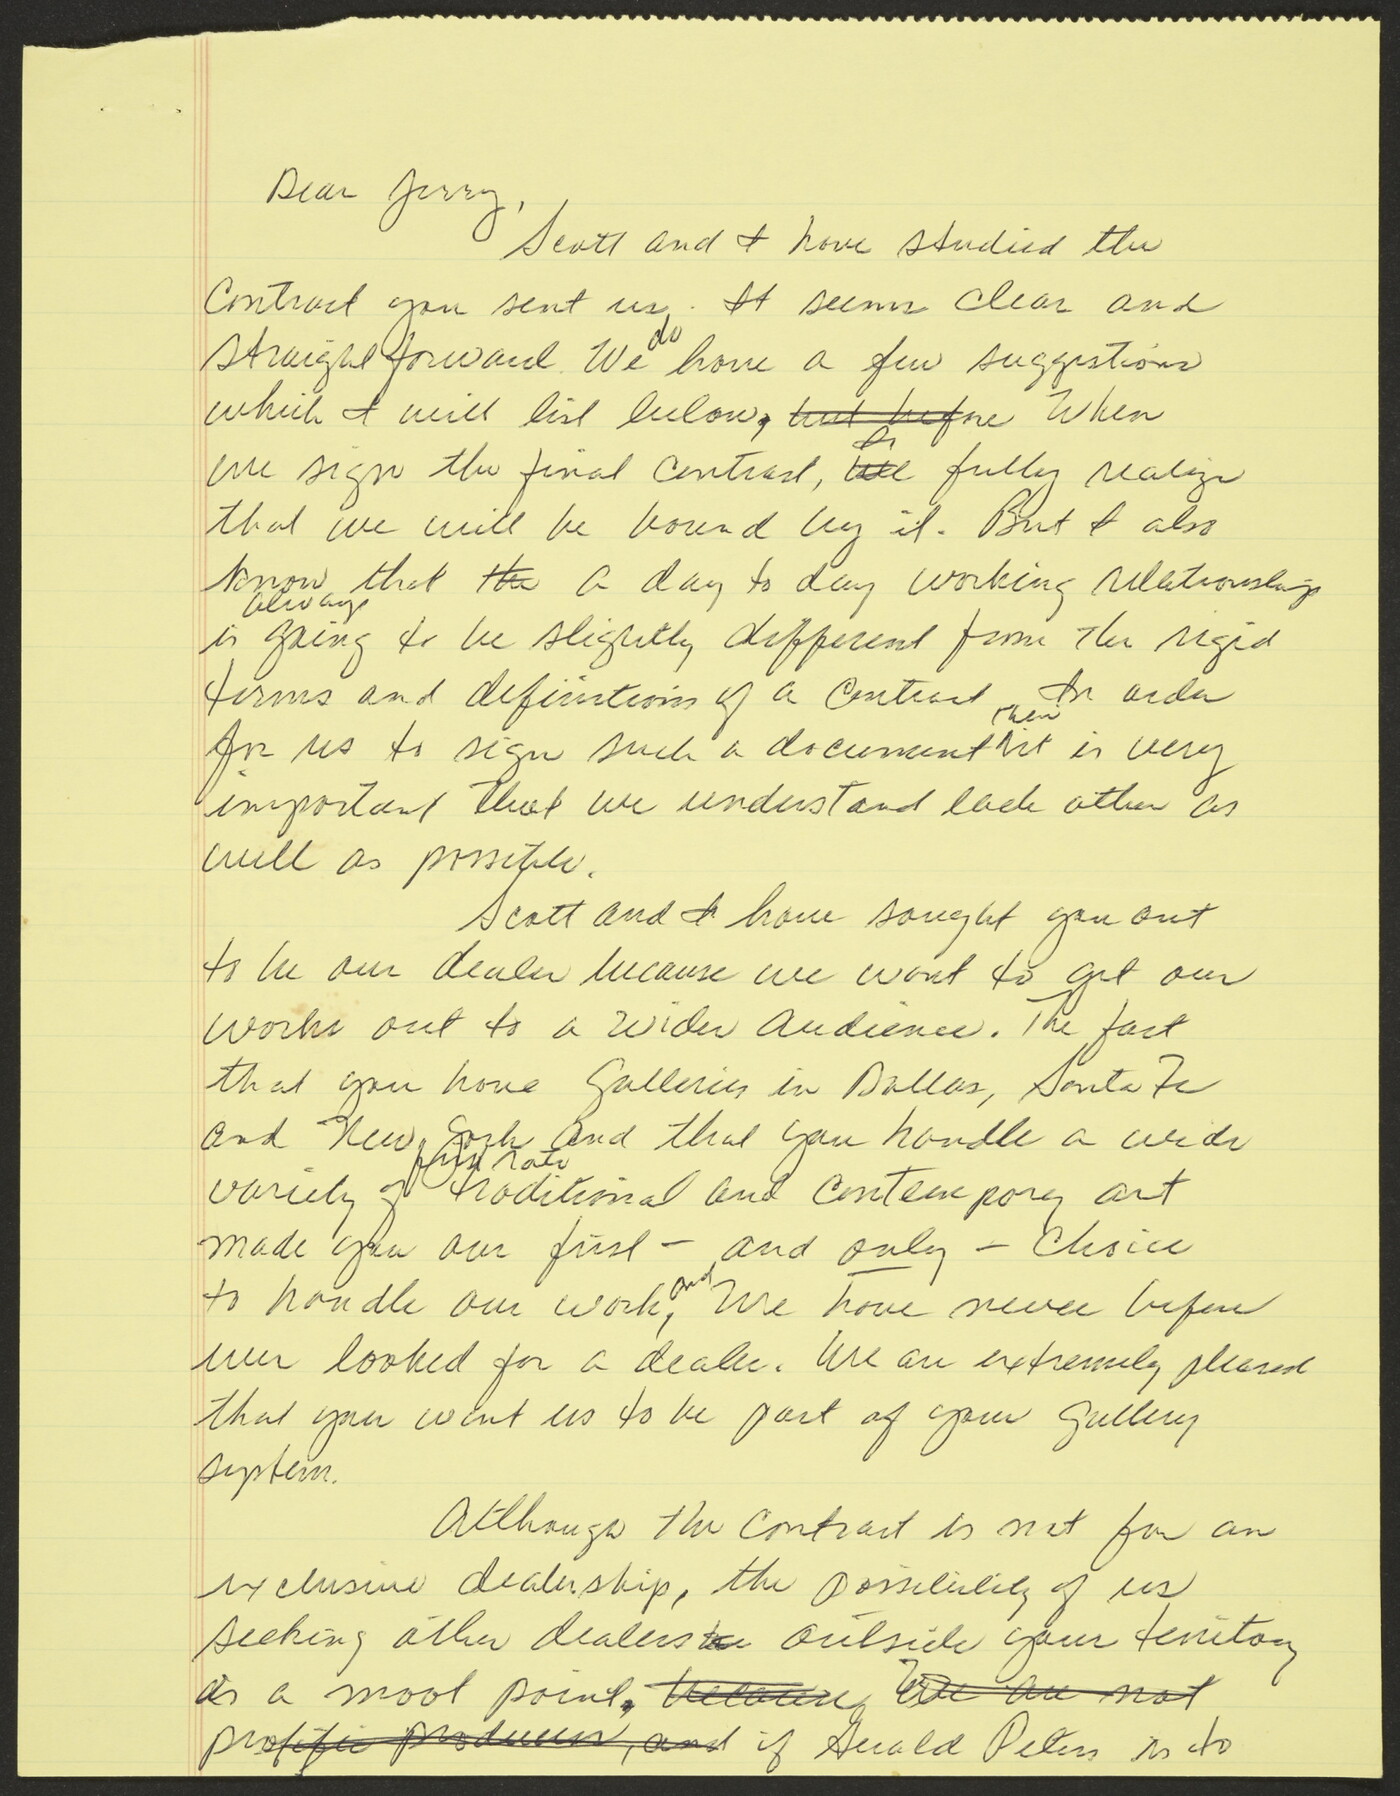 Dear Jerry,
Scott and I have studied the
Contract you sent us. It seems clear and
straightforward. We do have a few suggestions
which I will list below, but before When
we sign the final contract, we I fully realize
that we will be bound by it. But I also
know that the a day to day working relationship
is always going to be slightly different from the rigid
terms and definitions of a contract. In order
for us to sign such a document then it is very
important that we understand each other as
well as possible.
Scott and I have sought you out
to be our dealer because we want to get our
works out to a wider audience. The fact
that you have Galleries in Dallas, Santa Fe
and New York and that you handle a wide
variety of first rate traditional and contemporary art
made you our first – and only – choice
to handle our work, and We have never before
ever looked for a dealer. We are extremely pleased
that you want us to be part of your Gallery
system.
Although the Contract is not for an
exclusive dealership, the possibility of us
seeking other dealers outside your territory
is a moot point, because, We are not
prolific producers, and if Gerald Peters is to